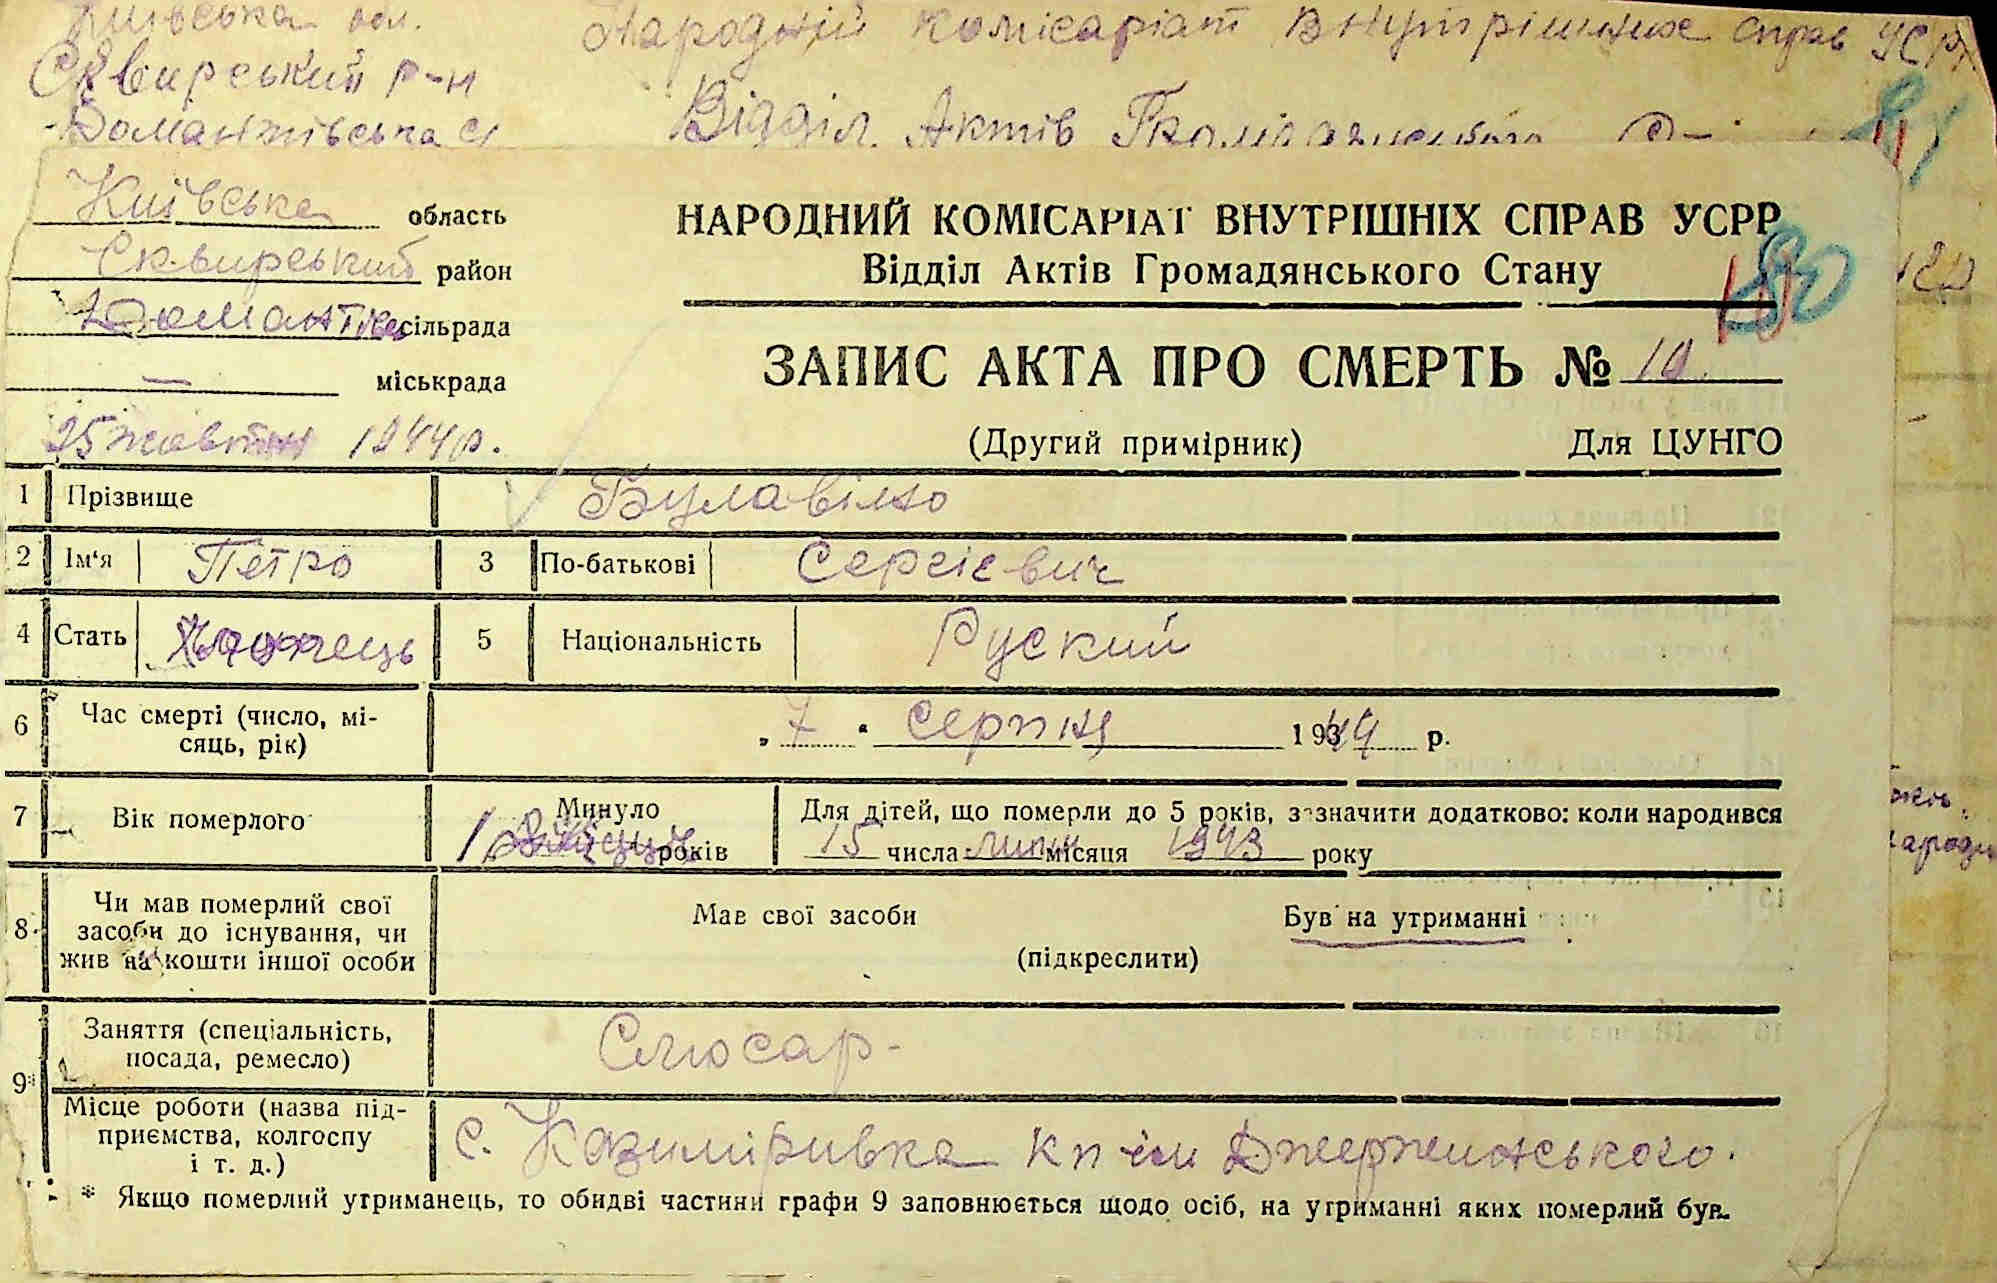 Київська обл.
Сквирський р-н
Домантівська с
Народній комісаріат внутрішніх справ УСРР
Відділ Актів
Київська область
Сквирський район
Домантів сільрада
— міськрада
25 жовтня 1944 р.
НАРОДНИЙ КОМІСАРІАТ ВНУТРІШНІХ СПРАВ УСРР
Відділ Актів Громадянського Стану
80
ЗАПИС АКТА ПРО СМЕРТЬ № 10
(Другий примірник) Для ЦУНГО
1 Прізвище Булавілко
2 Ім'я Петро 3 По-батькові Сергієвич
4 Стать Хлопчець 5 Національність Руский
6 Час смерті (число, мі-
сяць, рік)
„ 7 “ серпня 1944 р.
7 Вік померлого
Минуло
1 років
Для дітей, що померли до 5 років, зазначити додатково: коли народився
15 числа липня місяця 1943 року
8 Чи мав померлий свої
засоби до існування, чи
жив на кошти іншої особи
Мав свої засоби Був на утриманні
(підкреслити)
9* Заняття (спеціальність,
посада, ремесло)
Слюсар-
Місце роботи (назва під-
приємства, колгоспу
і т. д.)
с. Казиміривка кп ім Джержинського.
* Якщо померлий утриманець, то обидві частини графи 9 заповнюється щодо осіб, на утриманні яких померлий був.